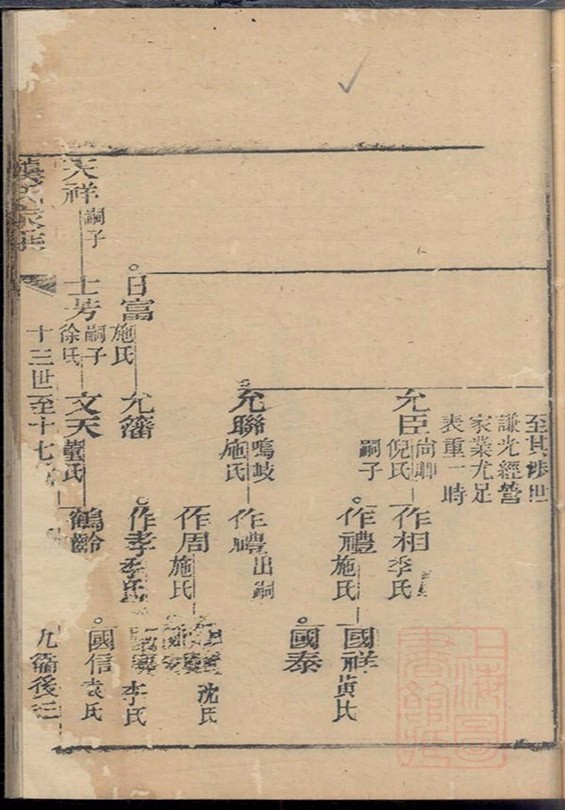 至其涉世
謙光經營
家業尤足
表重一時
允臣 尙卿 倪氏 嗣子
作相 李氏
作禮 施氏
國祥 黃氏
國泰
允聯 鳴岐 施氏
作禮 出嗣
作周 施氏
沈氏
日富 施氏
允籓
作孝 李氏
李氏
國信 袁氏
天祥 嗣子
士芳 嗣子 徐氏
文天 氏
鶴齡
十三世至十七
上海圖書館藏